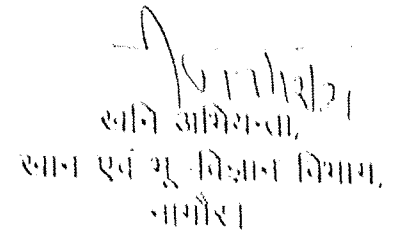 खनि अभियन्ता,
खान एवं भू-विज्ञान विभाग,
नागौर।